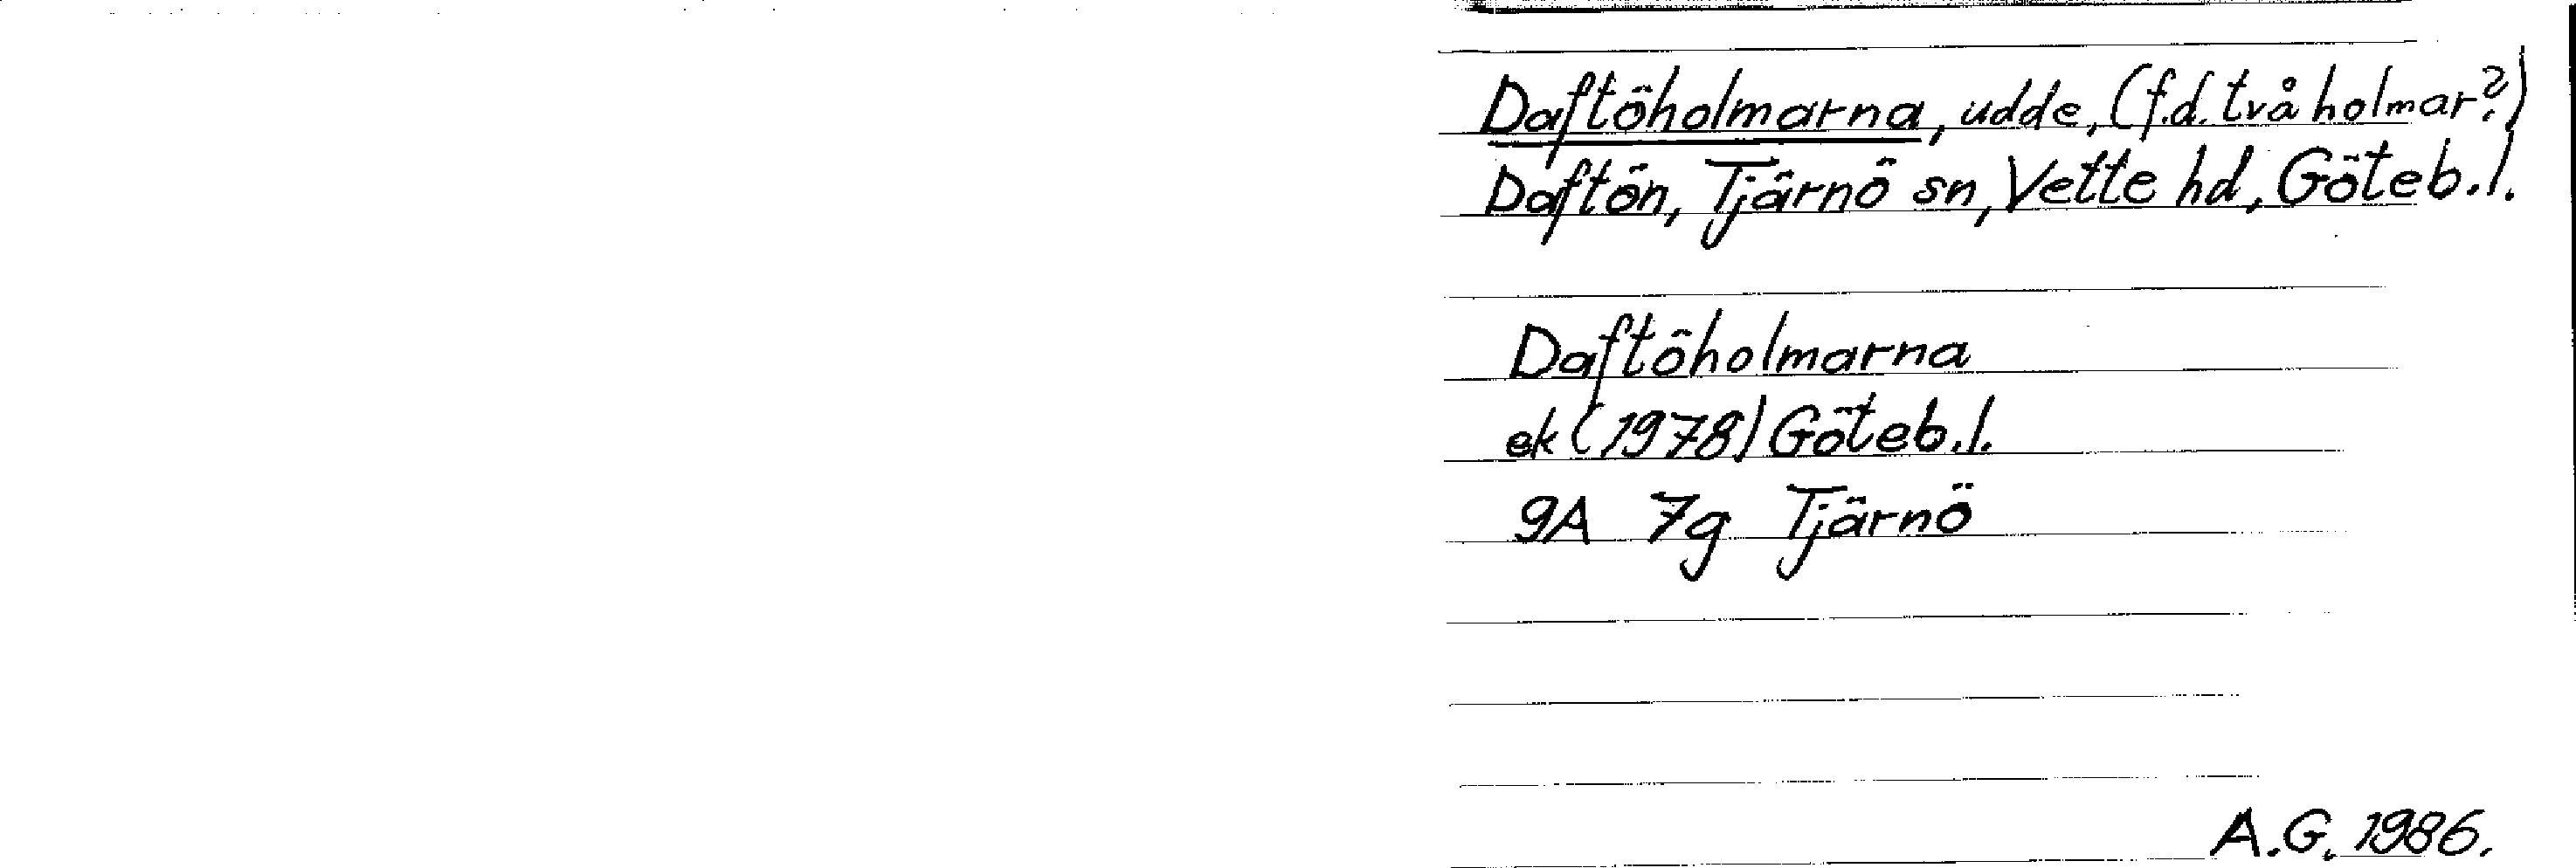 Daftöholmarna, udde, (f.d. två holmar?)
Daftön, Tjärnö sn, Vette hd, Göteb.l.
Daftöholmarna
ek (1978) Göteb.l.
9A 7g Tjärnö
A.G. 1986.